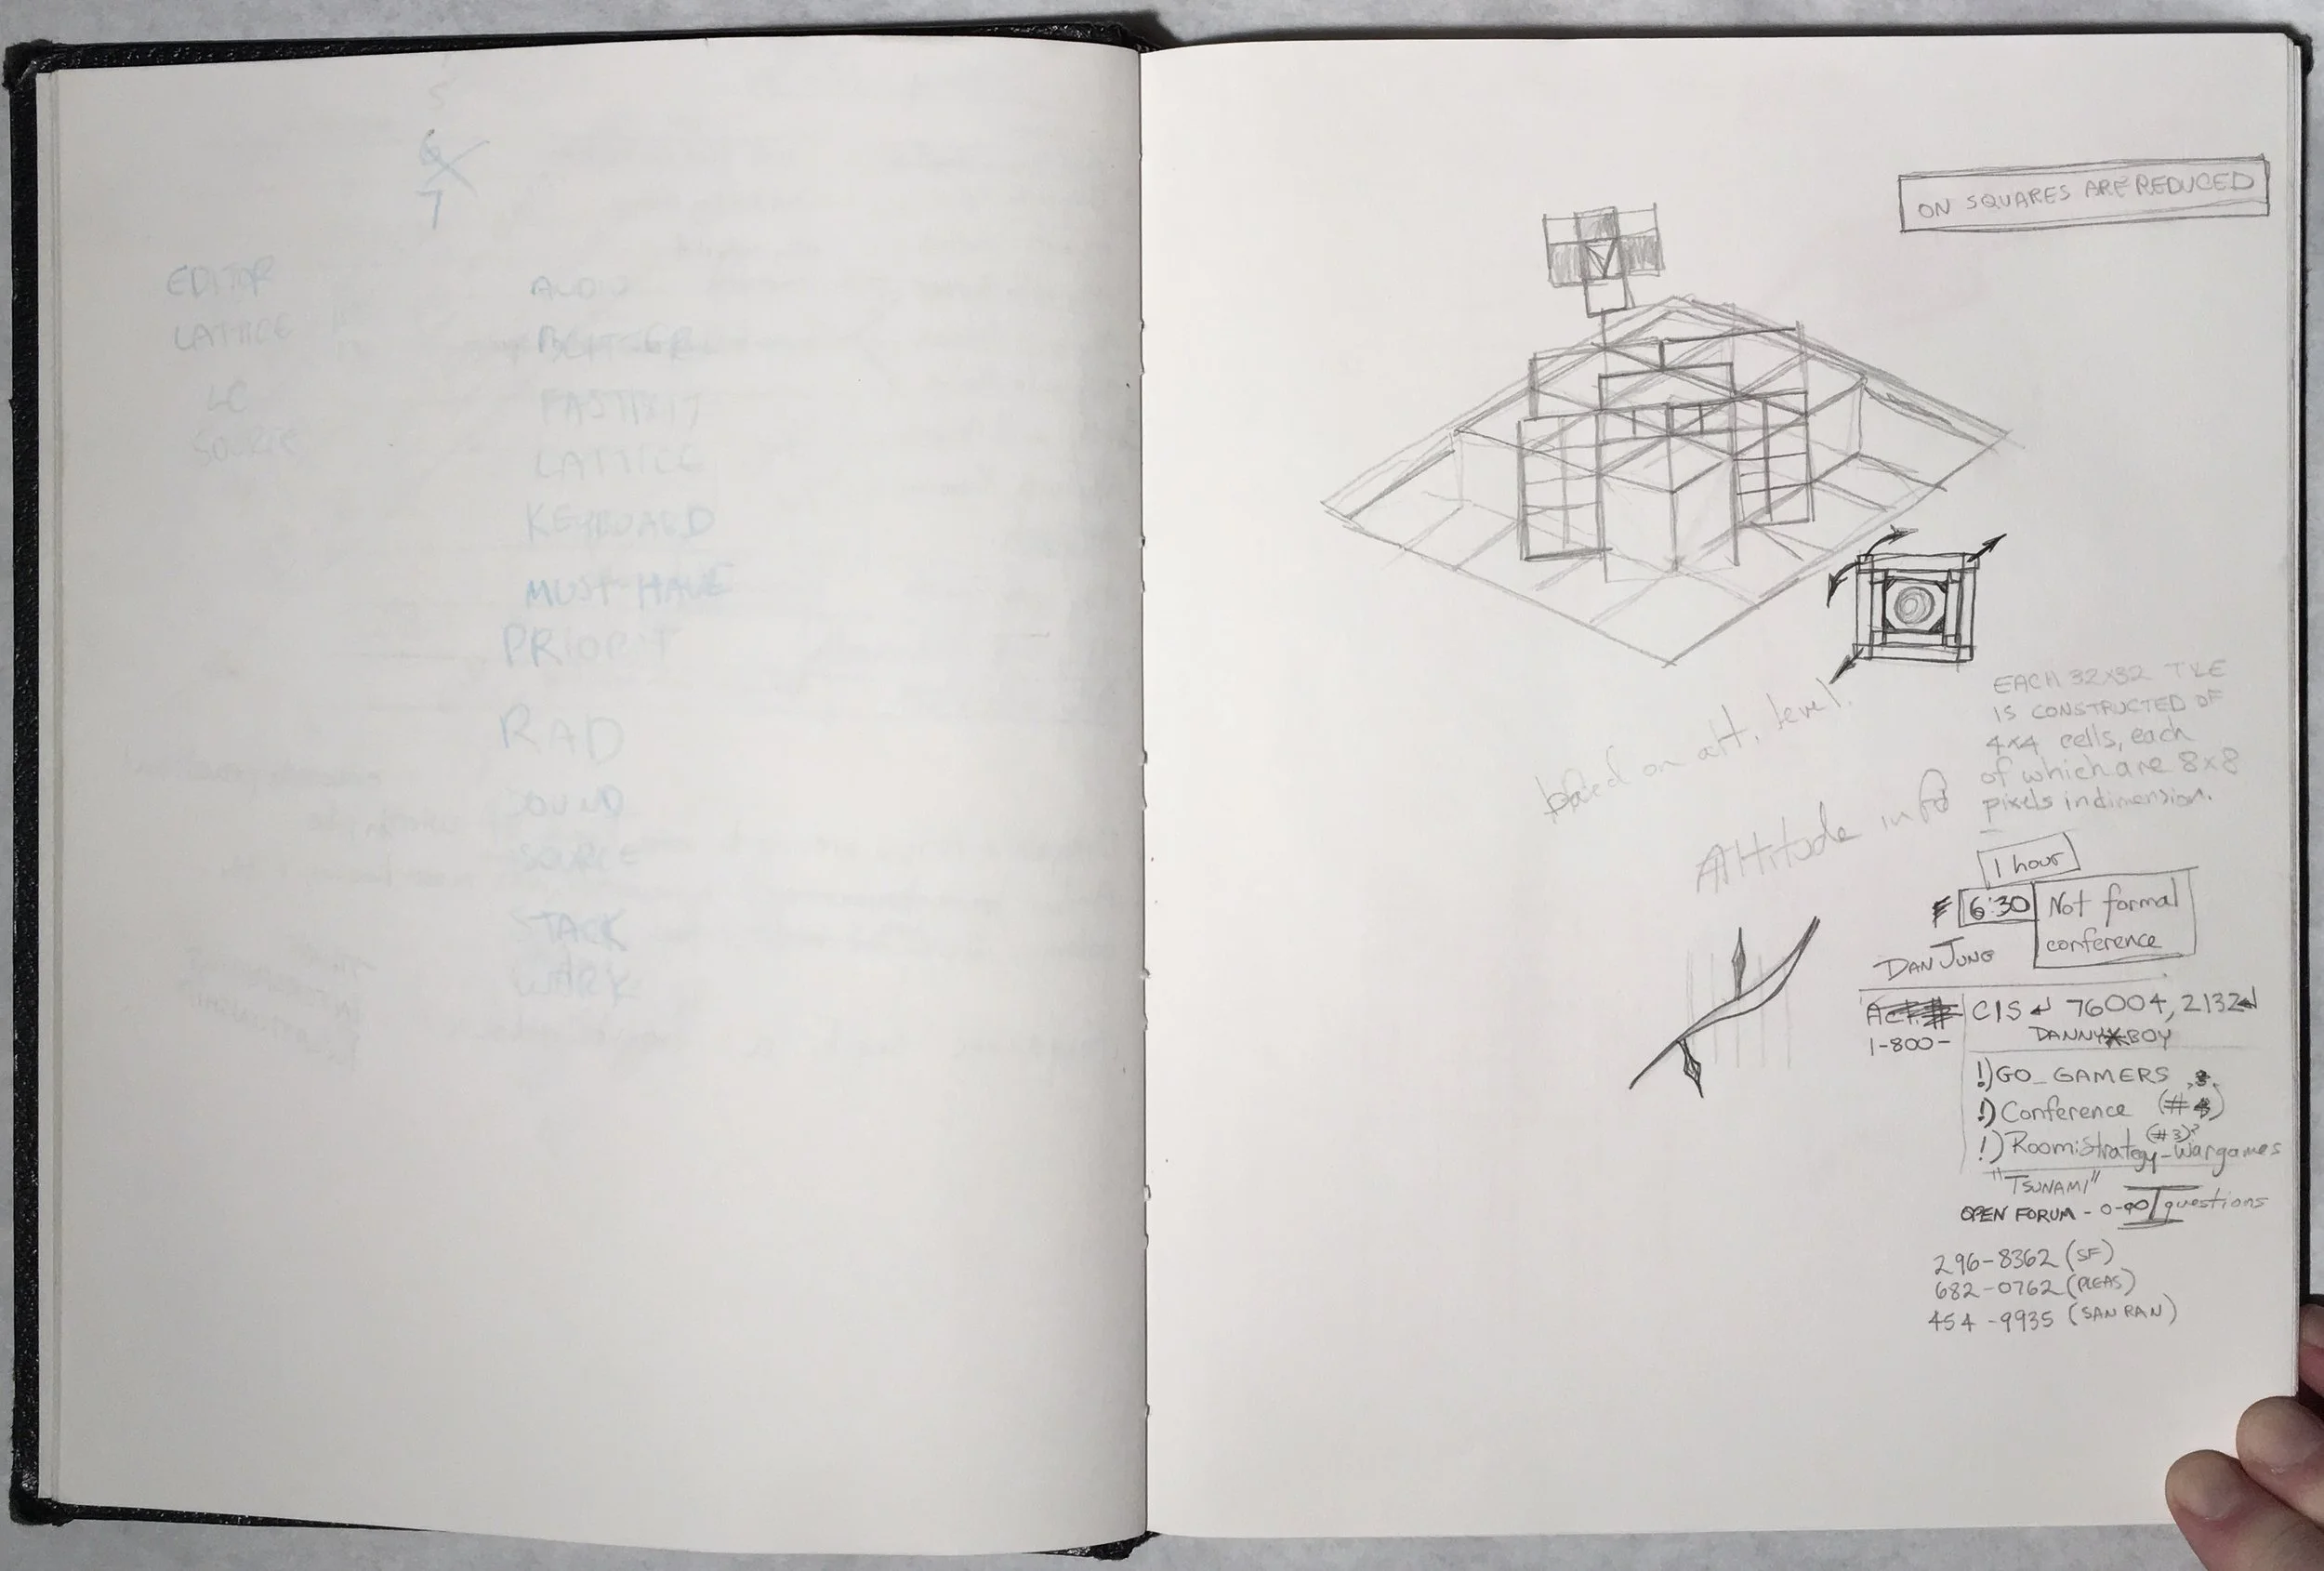 5
6
7
EDITOR
LATTICE
LC
SOURCE
AUDIO
BLITTER
LATTICE
KEYBOARD
MUST HAVE
PRIORIT
RAD
SOUND
SOURCE
STACK
WORK
ON SQUARES ARE REDUCED
EACH 32x32 TILE
IS CONSTRUCTED OF
4x4 cells, each
of which are 8x8
pixels in dimension.
based on alt. level.
Altitude info
1 hour
6:30 Not formal
conference
DAN JUNG
CIS 76004,2132
1-800-
DANNY*BOY
!) GO_GAMERS
!) Conference (#
(#3)?
!) Room: Strategy-Wargames
"TSUNAMI"
OPEN FORUM - questions
296-8362 (SF)
682-0762 (PLEAS)
454-9935 (SAN RAN)